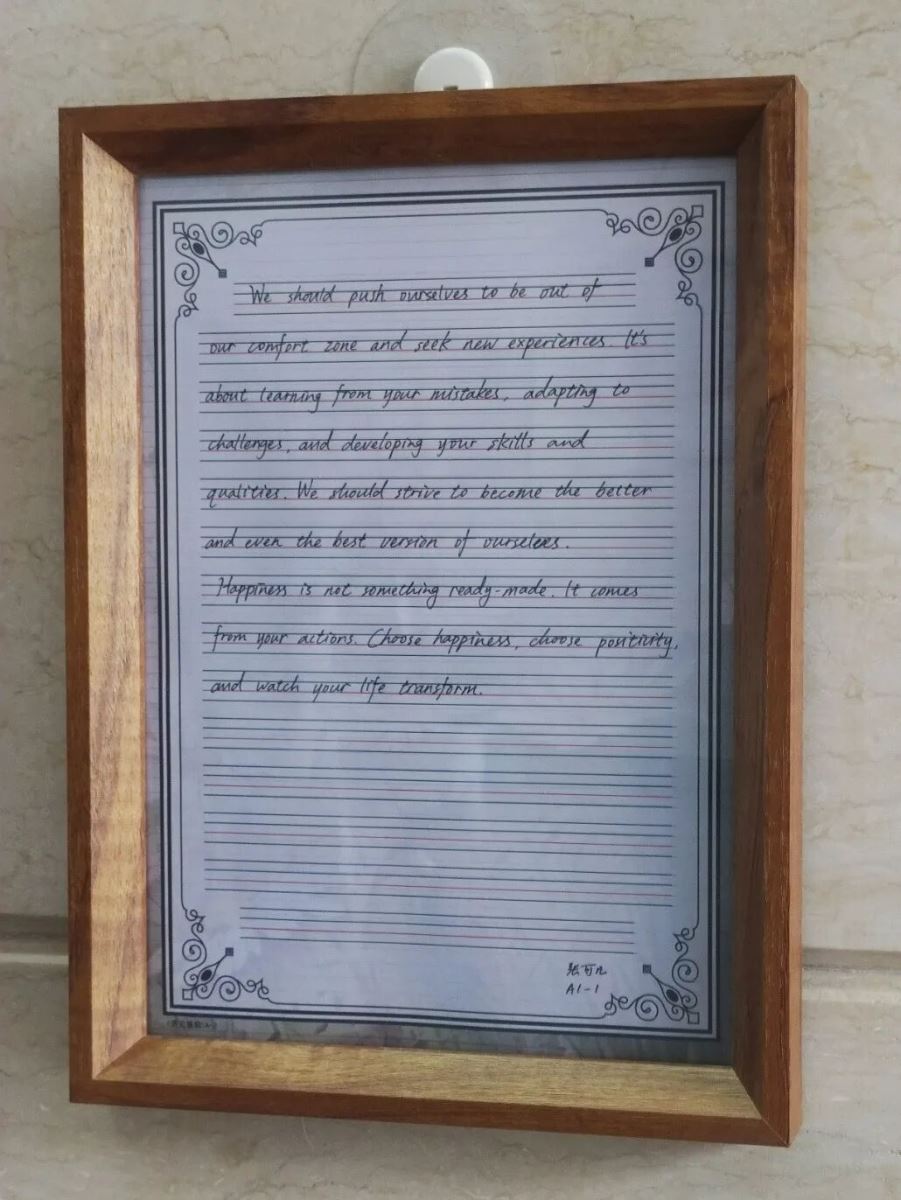 We should push ourselves to be out of
our comfort zone and seek new experiences. It's
about learning from your mistakes, adapting to
challenges, and developing your skills and
qualities. We should strive to become the better
and even the best version of ourselves.
Happiness is not something ready-made. It comes
from your actions. Choose happiness, choose positivity,
and watch your life transform.
张可凡
A1-1